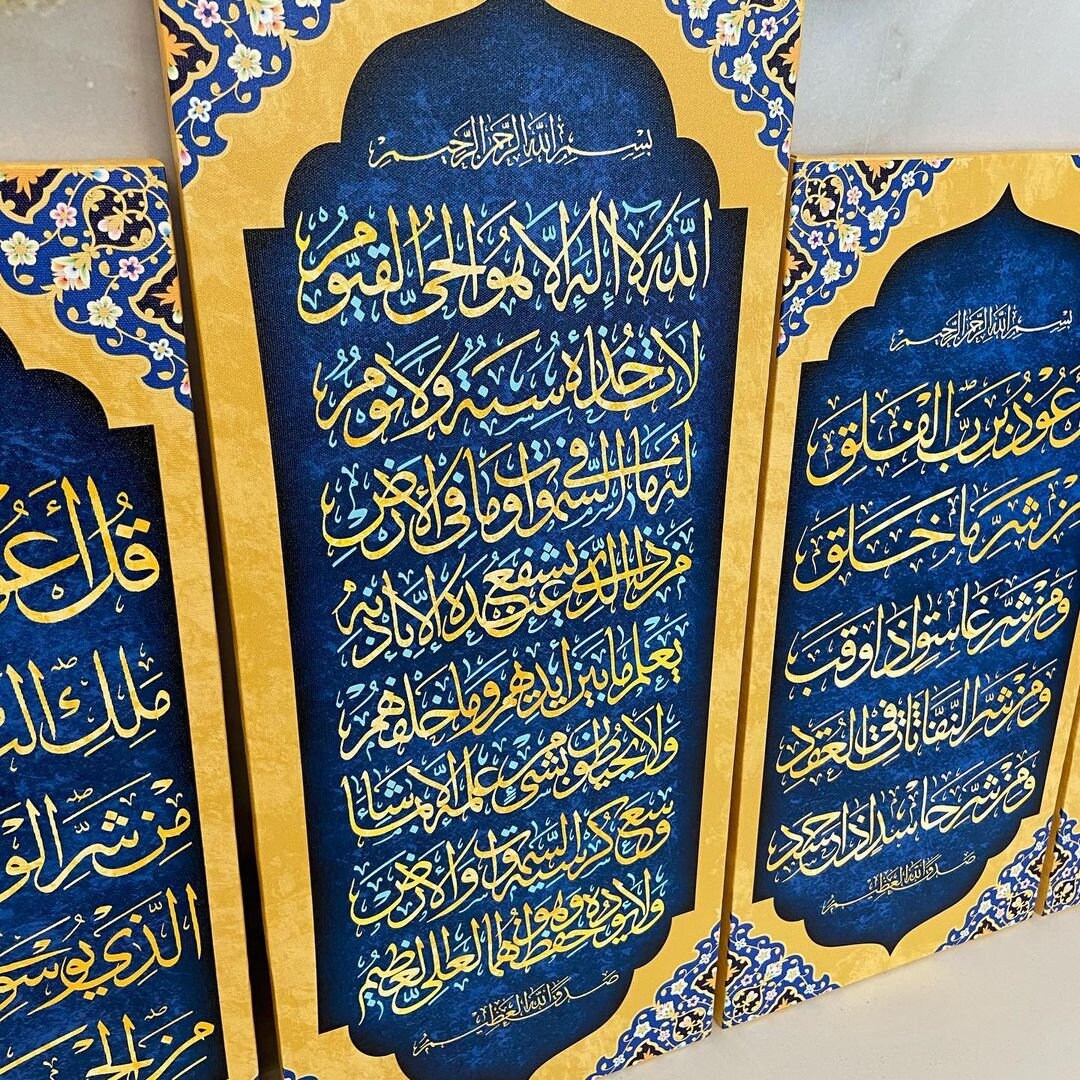 بسم الله الرحمن الرحيم
اللَّهُ لَا إِلَهَ إِلَّا هُوَ الْحَيُّ الْقَيُّومُ
لَا تَأْخُذُهُ سِنَةٌ وَلَا نَوْمٌ
لَهُ مَا فِي السَّمَوَاتِ وَمَا فِي الْأَرْضِ
مَنْ ذَا الَّذِي يَشْفَعُ عِنْدَهُ إِلَّا بِإِذْنِهِ
يَعْلَمُ مَا بَيْنَ أَيْدِيهِمْ وَمَا خَلْفَهُمْ
وَلَا يُحِيطُونَ بِشَيْءٍ مِنْ عِلْمِهِ إِلَّا بِمَا شَاءَ
وَسِعَ كُرْسِيُّهُ السَّمَوَاتِ وَالْأَرْضَ
وَلَا يَئُودُهُ حِفْظُهُمَا وَهُوَ الْعَلِيُّ الْعَظِيمُ
صدق الله العظيم
بسم الله الرحمن الرحيم
عُوذُ بِرَبِّ الْفَلَقِ
مِنْ شَرِّ مَا خَلَقَ
وَمِنْ شَرِّ غَاسِقٍ إِذَا وَقَبَ
وَمِنْ شَرِّ النَّفَّاثَاتِ فِي الْعُقَدِ
وَمِنْ شَرِّ حَاسِدٍ إِذَا حَسَدَ
صدق الله العظيم
قُلْ أَعُو
مَلِكِ الن
مِنْ شَرِّ الْو
الَّذِي يُوَسْو
مِنَ الْجِ